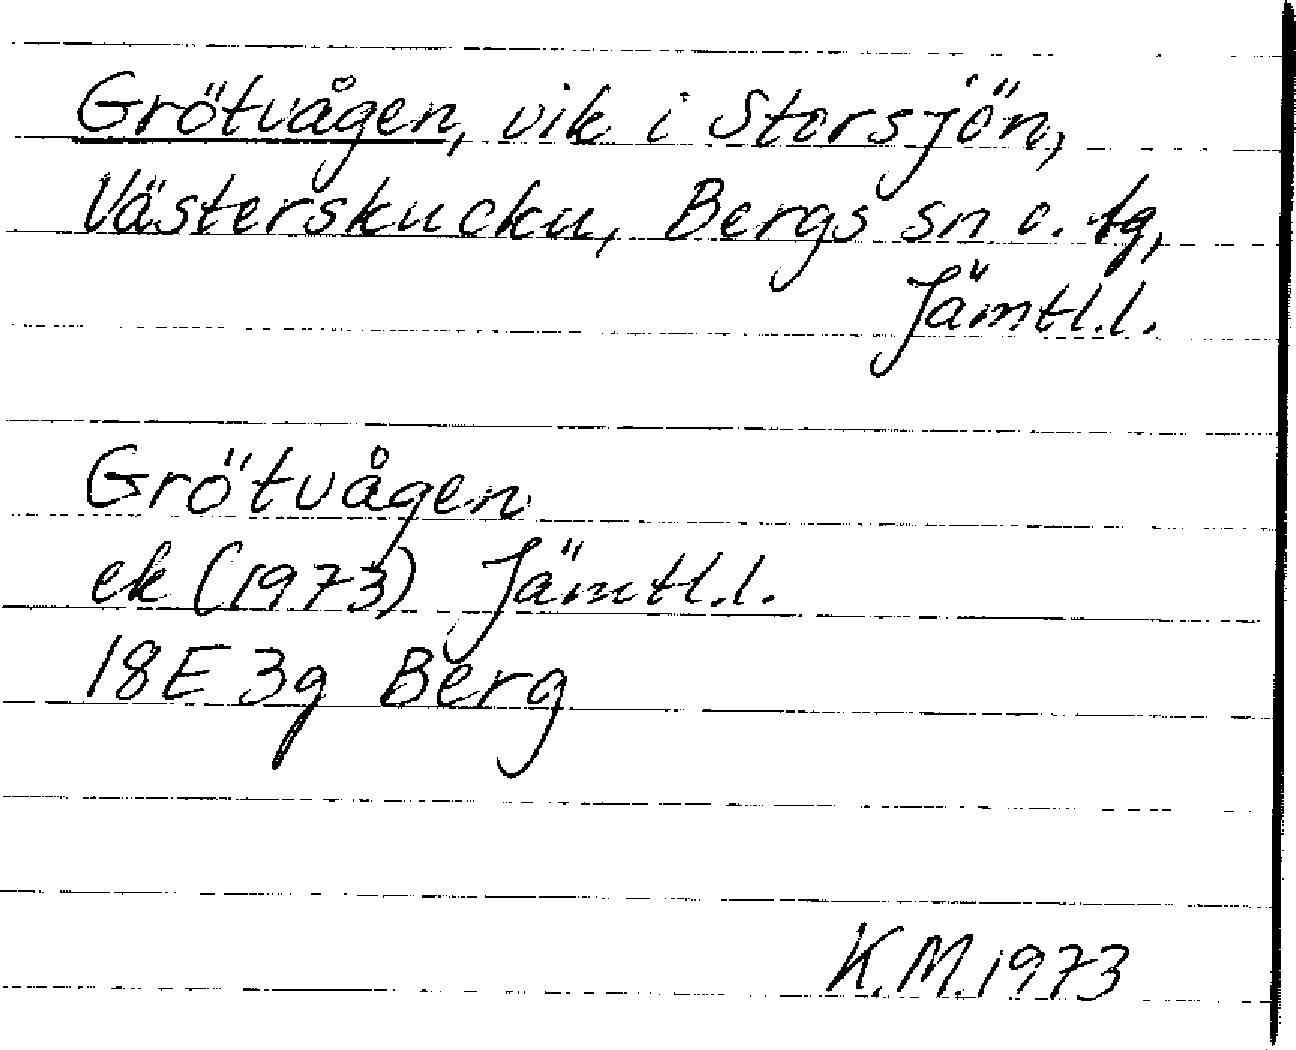 Grötvågen, vik i Storsjön,
Västerskucku, Bergs sn o. tg,
Jämtl.l.
Grötvågen
ek (1973) Jämtl.l.
18E 3g Berg
K.M. 1973